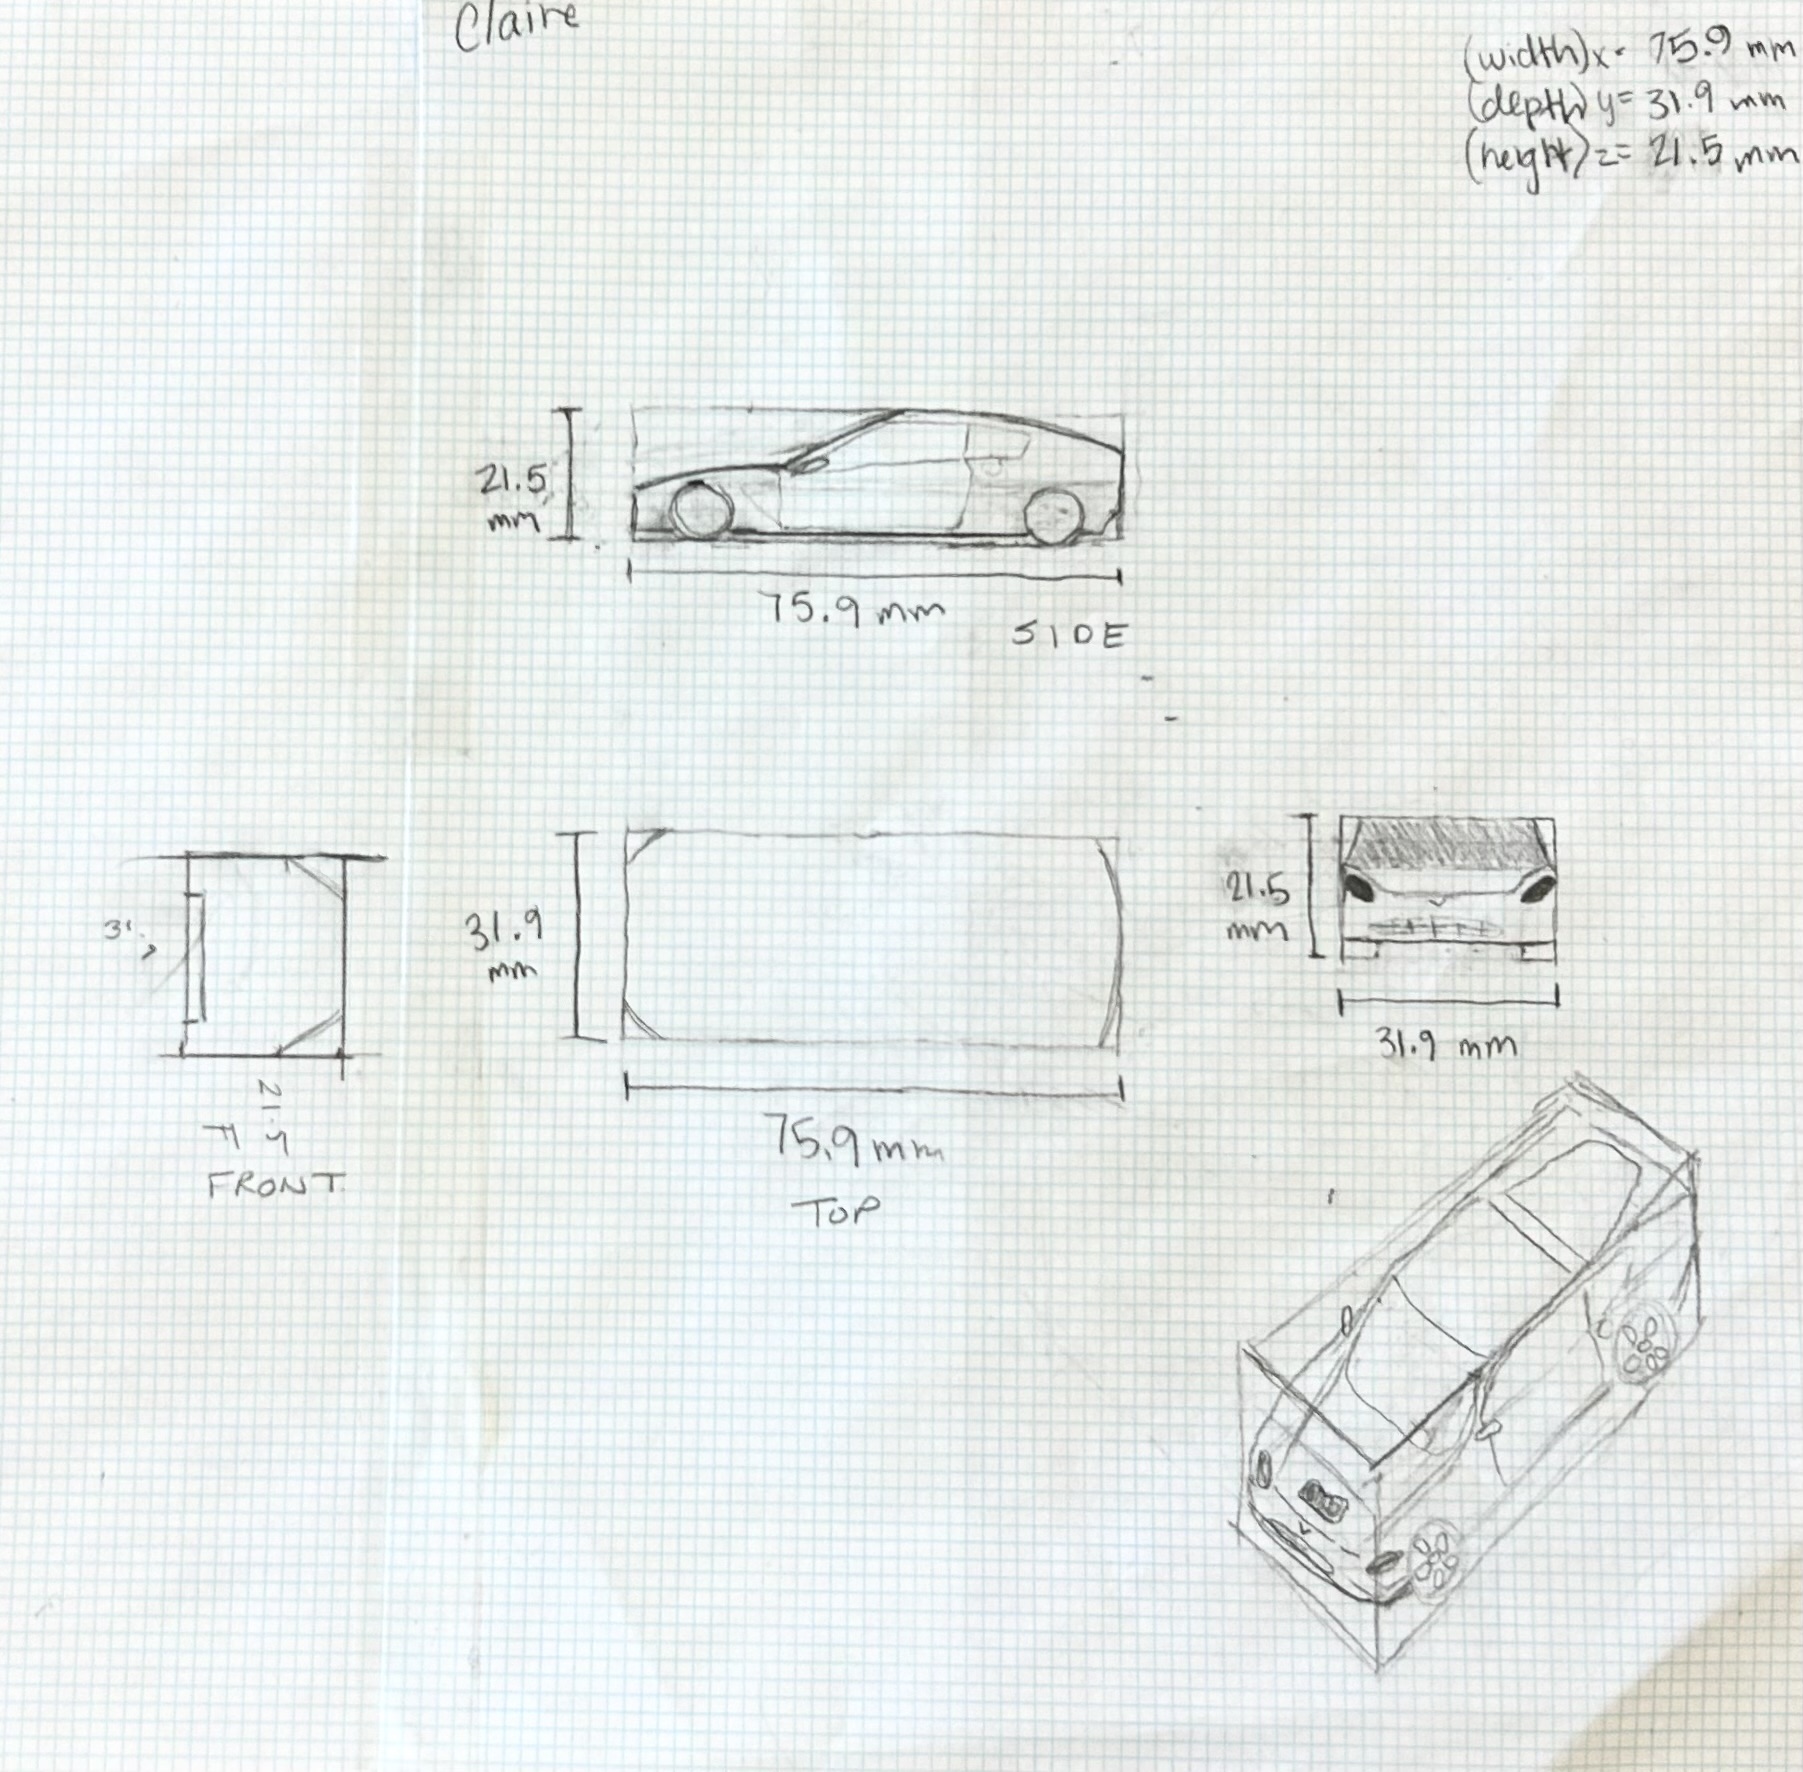 Claire
(width) x = 75.9 mm
(depth) y = 31.9 mm
(height) z = 21.5 mm
21.5
mm
75.9 mm
SIDE
31.9
mm
75.9 mm
TOP
21.5
mm
31.9 mm
FRONT